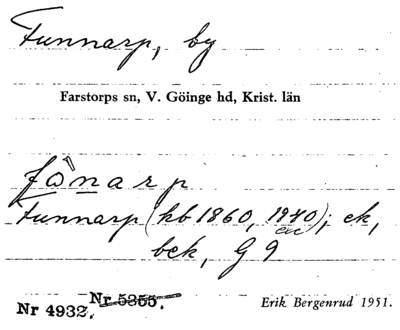 Funnarp, by
Farstorps sn, V. Göinge hd, Krist. län
fånarp
Funnarp (kb 1860, 1940); ek,
bek, G 9
Nr 4932. Nr 5355.
Erik Bergenrud 1951.